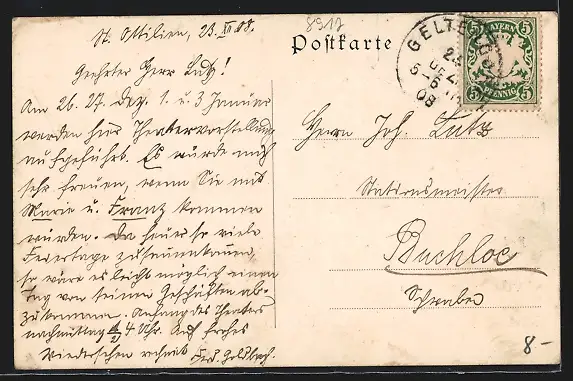 St. Ottilien, 23. XII 08.
Geehrter Herr Lutz!
Am 26. 27. Dez. 1. u. 3 Januar
werden hier Theatervorstellung
aufgeführt. Es würde mich
sehr freuen, wenn Sie mit
Marie u. Franz kommen
würden. Da heuer so viele
Feiertage zusammenkommen
so wäre es leicht möglich einen
Tag von seinen Geschäften ab-
zukommen. Anfang des Theaters
nachmittag 4 Uhr. Auf frohes
Wiedersehen
8917
Postkarte
BAYERN
5 5
5 PFENNIG 5
GELTENDORF
5-6
08
Herrn Joh. Lutz
Stationsmeister
Buchloe
Schwaben
8-